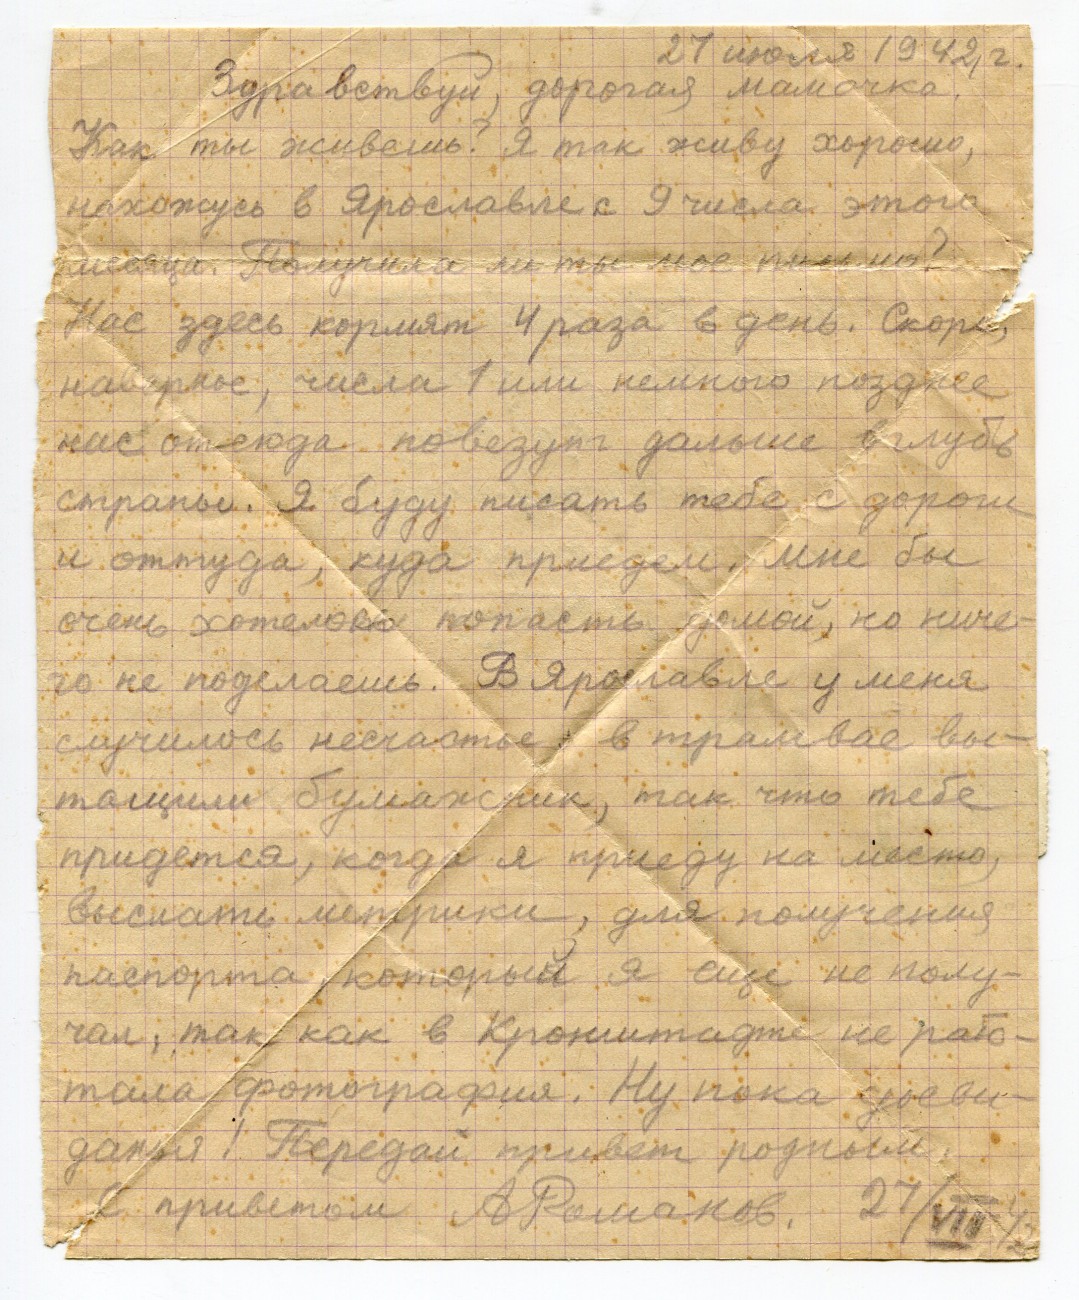 27 июля 1942 г.
Здравствуй, дорогая мамочка.
Как ты живешь? Я так живу хорошо,
нахожусь в Ярославле с 9 числа этого
месяца. Получила ли ты мое письмо?
Нас здесь кормят 4 раза в день. Скоро,
наверное, числа 1 или немного позднее
нас отсюда повезут дальше вглубь
страны. Я буду писать тебе с дороги
и оттуда, куда приедем. Мне бы
очень хотелось попасть домой, но ниче-
го не поделаешь. В Ярославле у меня
случилось несчастье, в трамвае вы-
тащили бумажник, так что тебе
придется, когда я приеду на место,
выслать метрики, для получения
паспорта, который я еще не полу-
чал, так как в Кронштадте не рабо-
тала фотография. Ну пока досви-
данья! Передай привет родным.
С приветом АРоманов. 27/VII 42